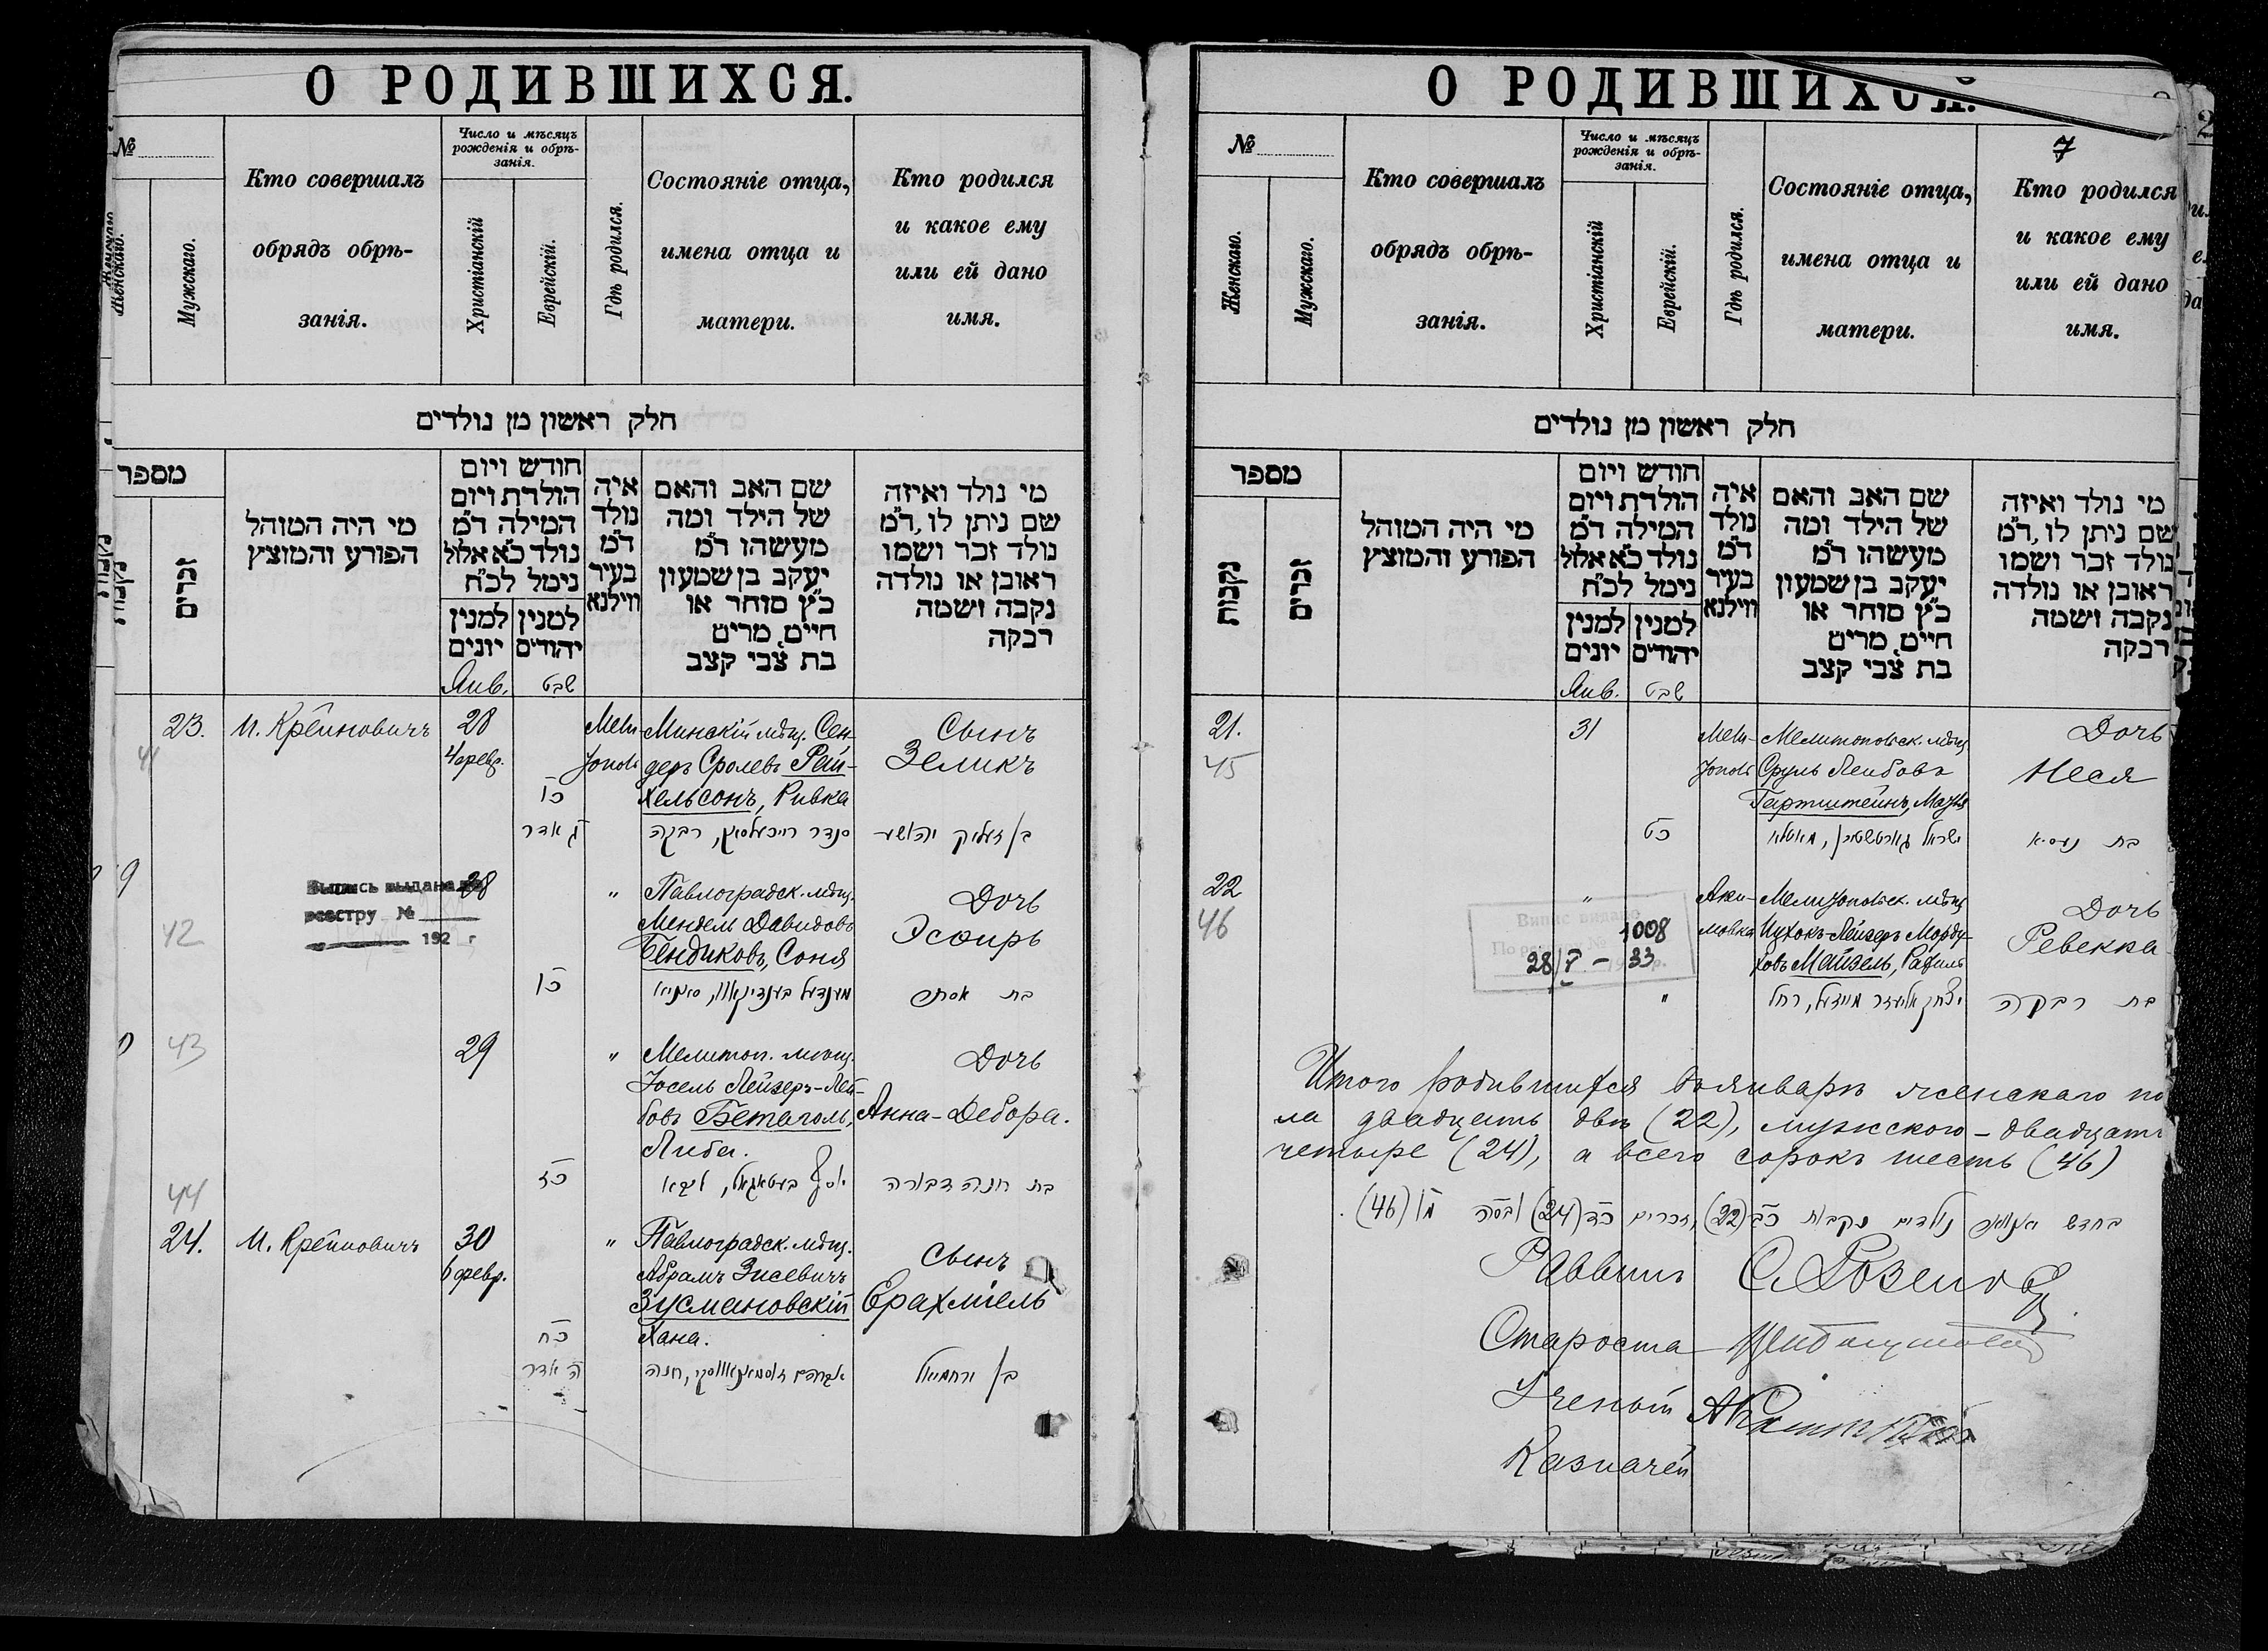 О РОДИВШИХСЯ.
№
Женскаго.
Мужскаго.
Кто совершалъ
обрядъ обрѣ-
занія.
Число и мѣсяцъ
рожденія и обрѣ-
занія.
Христіанскій
Еврейскій.
Гдѣ родился.
Состояніе отца,
имена отца и
матери.
Кто родился
и какое ему
или ей дано
имя.
חלק ראשון מן נולדים
מספר
נקבות
זכרים
מי היה המוהל
הפורע והמוצץ
חודש ויום
הולדת ויום
המילה ד״מ
נולד כ״א אלול
נימל לכ״ח
למנין
יונים
למנין
יהודים
איה
נולד
ד״מ
בעיר
ווילנא
שם האב והאם
של הילד ומה
מעשהו ד״מ
יעקב בן שמעון
כ״ץ סוחר או
חיים, מרים
בת צבי קצב
מי נולד ואיזה
שם ניתן לו, ד״מ
נולד זכר ושמו
ראובן או נולדה
נקבה ושמה
רבקה
Янв.
שבט
23.
41
И. Крейновичъ
28
4 февр.
כו
ג אדר
Мели-
тополь
Минскій мѣщ. Сен-
деръ Сролевъ Рей-
хельсонъ, Ривка
סנדר רייכעלסאן, רבקה
Сынъ
Зеликъ
בן זעליק יהושע
9
42
Выпись выдана по
реестру №
192 г
28
כו
"
Павлоградск. мѣщ.
Мендель Давидовъ
Бендиковъ, Соня
Дочь
Эсфирь
בת אסתר
43
29
כז
"
Мелитоп. мѣщ.
Іосель Лейзеръ-Лей-
бовъ Бетаголь,
Либа.
Дочь
Анна-Дебора.
בת חנה דבורה
44
24.
И. Крейновичъ
30
6 февр.
כח
ה אדר
"
Павлоградск. мѣщ.
Абрамъ Зисевичъ
Зусмановскій
Хана.
אברהם זוסמאנאווסקי, חנה
Сынъ
Ерахміель
בן ירחמיאל
О РОДИВШИХСЯ.
7
№
Женскаго.
Мужскаго.
Кто совершалъ
обрядъ обрѣ-
занія.
Число и мѣсяцъ
рожденія и обрѣ-
занія.
Христіанскій
Еврейскій.
Гдѣ родился.
Состояніе отца,
имена отца и
матери.
Кто родился
и какое ему
или ей дано
имя.
חלק ראשון מן נולדים
מספר
נקבות
זכרים
מי היה המוהל
הפורע והמוצץ
חודש ויום
הולדת ויום
המילה ד״מ
נולד כ״א אלול
נימל לכ״ח
למנין
יונים
למנין
יהודים
איה
נולד
ד״מ
בעיר
ווילנא
שם האב והאם
של הילד ומה
מעשהו ד״מ
יעקב בן שמעון
כ״ץ סוחר או
חיים, מרים
בת צבי קצב
מי נולד ואיזה
שם ניתן לו, ד״מ
נולד זכר ושמו
ראובן או נולדה
נקבה ושמה
רבקה
Янв.
שבט
21.
45
31
כט
Мели-
тополь
Мелитопольск. мѣщ
Сруль Лейбовъ
Гартштейнъ,
Дочь
Неся
בת נעסיא
22
46
"
Випис видано
По реєстру №
1008
28/V - 33
"
Аки-
мовка
Мелитопольск. мѣщ
Ицхокъ-Лейзеръ Морду-
ховъ Майзель, Рахиль
יצחק אליעזר מייזעל, רחל
Дочь
Ревекка
בת רבקה
Итого родившихся въ январѣ женскаго по
ла двадцать двѣ (22), мужского - двадцать
четыре (24), а всего сорокъ шесть (46)
בחדש יאנואר נולדים נקבות כב (22), זכרים כד (24) ובסה מו (46).
Раввинъ
Староста
Ученый
Казначей